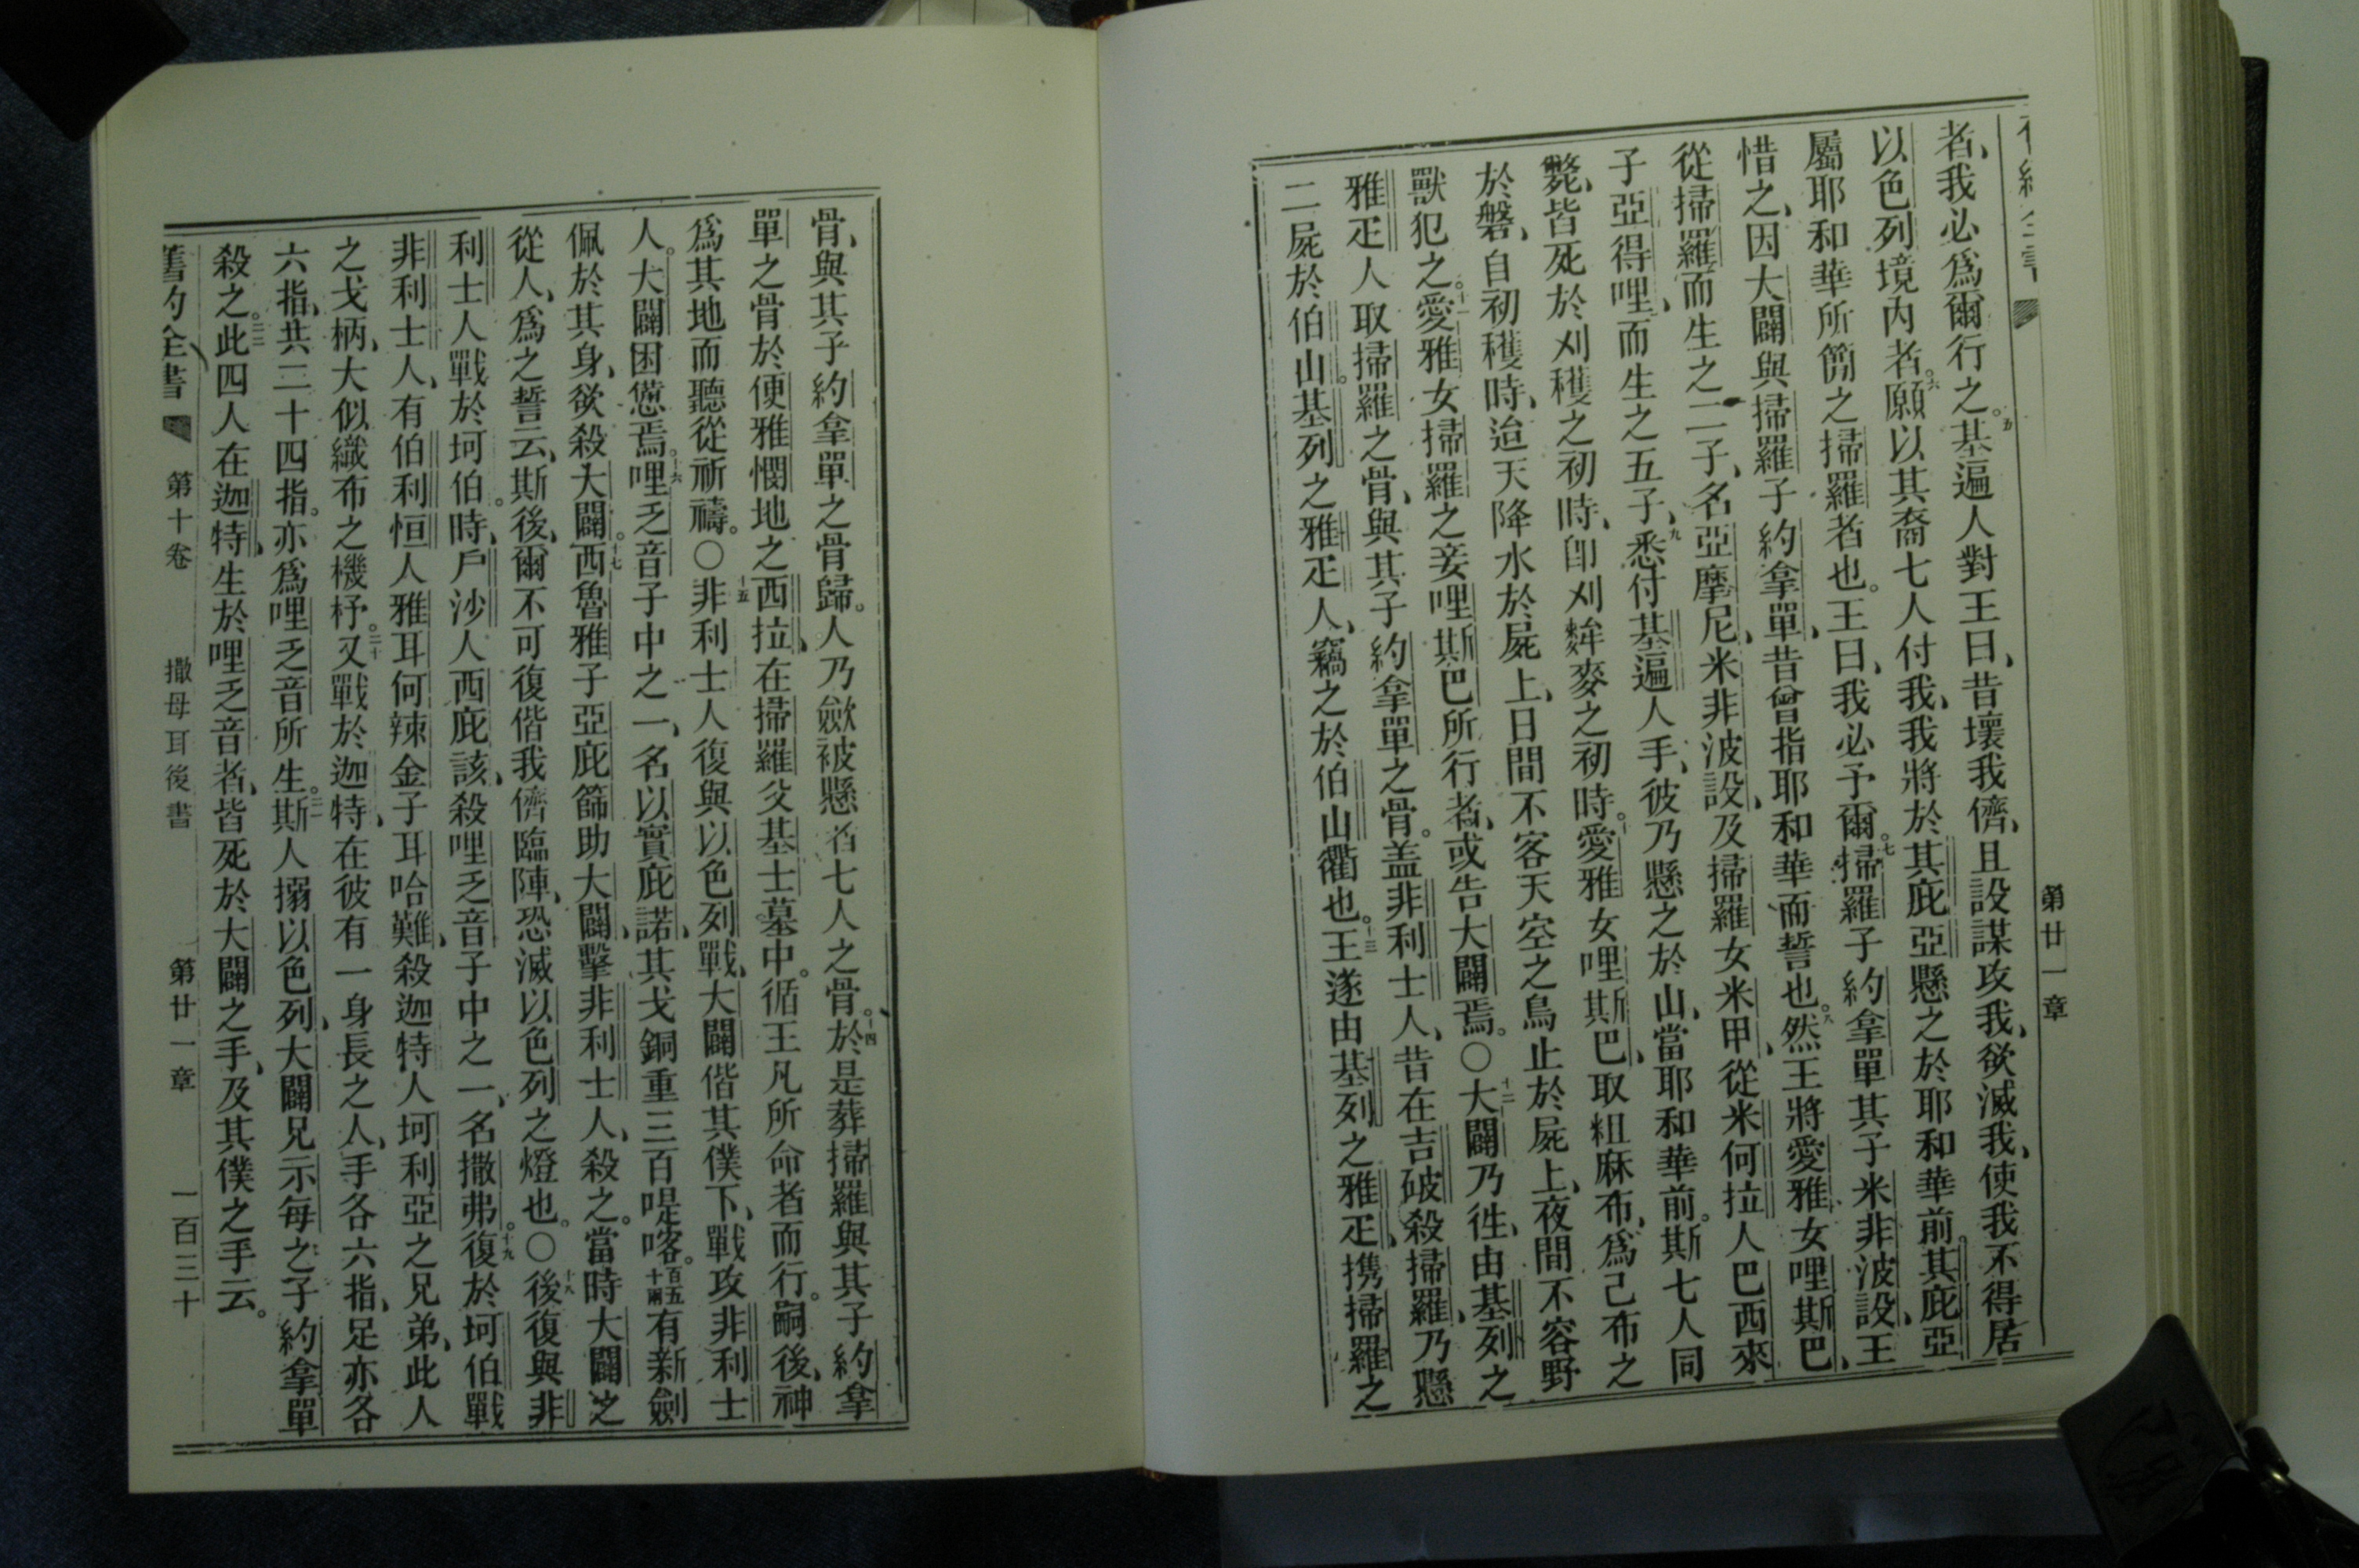 第廿一章
者、我必爲爾行之。五基遍人對王曰、昔壞我儕、且設謀攻我、欲滅我、使我不得居
以色列境內者。六願以其裔七人付我、我將於其庇亞懸之於耶和華前。其庇亞
屬耶和華所簡之掃羅者也。王曰、我必予爾。七掃羅子約拿單其子米非波設、王
惜之、因大闢與掃羅子約拿單、昔曾指耶和華而誓也。八然王將愛雅女哩斯巴、
從掃羅而生之二子、名亞摩尼、米非波設、及掃羅女米甲、從米何拉人巴西來
子亞得哩、而生之五子、九悉付基遍人手、彼乃懸之於山、當耶和華前。斯七人同
斃、皆死於刈穫之初時、卽刈麰麥之初時。十愛雅女哩斯巴、取粗麻布、爲己布之
於磐、自初穫時、迨天降水於屍上、日間不容天空之鳥止於屍上、夜間不容野
獸犯之。十一愛雅女掃羅之妾哩斯巴所行者、或告大闢焉。○十二大闢乃徃、由基列之
雅疋人取掃羅之骨、與其子約拿單之骨。盖非利士人、昔在吉破殺掃羅、乃懸
二屍於伯山。基列之雅疋人、竊之於伯山衢也。十三王遂由基列之雅疋、携掃羅之
骨、與其子約拿單之骨歸。人乃歛被懸者七人之骨。十四於是葬掃羅與其子約拿
單之骨於便雅憫地之西拉、在掃羅父基士墓中。循王凡所命者而行。嗣後、神
爲其地而聽從祈禱。○十五非利士人復與以色列戰、大闢偕其僕下、戰攻非利士
人。大闢困憊焉。十六哩乏音子中之一、名以實庇諾、其戈銅重三百喼喀。百五十兩有新劍
佩於其身、欲殺大闢。十七西魯雅子亞庇篩助大闢、擊非利士人、殺之。當時大闢之
從人、爲之誓云、斯後、爾不可復偕我儕臨陣、恐滅以色列之燈也。○十八後復與非
利士人戰於坷伯。時、戶沙人西庇該、殺哩乏音子中之一、名撒弗。十九復於坷伯戰
非利士人、有伯利恒人雅耳何辣金子耳哈難、殺迦特人坷利亞之兄弟、此人
之戈柄、大似織布之機杼。二十又戰於迦特、在彼有一身長之人、手各六指、足亦各
六指、共二十四指。亦爲哩乏音所生。二一斯人搦以色列、大闢兄示每之子約拿單
殺之。二二此四人在迦特、生於哩乏音者、皆死於大闢之手、及其僕之手云。
舊約全書 第十卷 撒母耳後書 第廿一章 一百三十